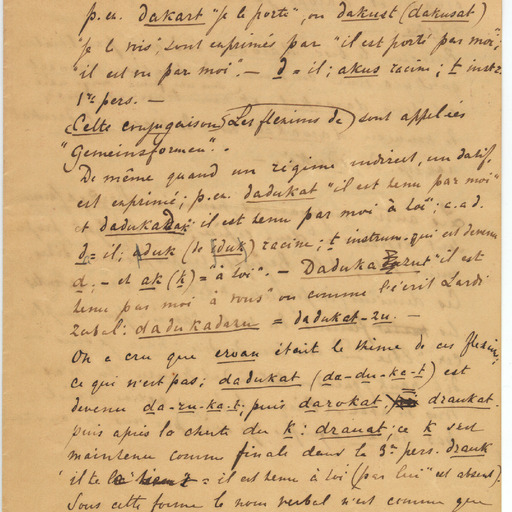 p.ex. dakart "je le porte", ou dakust (dakusat)
"je le vois", sont exprimés par "il est porté par moi",
"il est vu par moi". — d = il; akus racine; t instr.
1re pers. —
Cette conjugaison (Les flexions de) sont appelées
"Gemeinsformen".
De même quand un régime indirect, un datif,
est exprimé; p.ex. dadukat "il est tenu par moi"
et dadukadak il est tenu par moi à toi"; c.a.d.
d = il; aduk (de iduk) racine; t instrum. qui est devenu
d; – et ak (k) = "à toi". — Daduka zut "il est
tenu par moi à vous" ou comme l'écrit Lardi
zabal: dadukadazu = dadukat-zu. —
On a cru que eroan était le thème de ces flexions,
ce qui n'est pas; dadukat (da-du-ka-t) est
devenu da-ru-ka-t, puis darokat draukat
puis après la chute du k: drauat; ce k s'est
maintenu comme finale dans la 3e pers. drauk
il te le = il est tenu à toi (par lui" est absent).
Sous cette forme le nom verbal n'est comme que